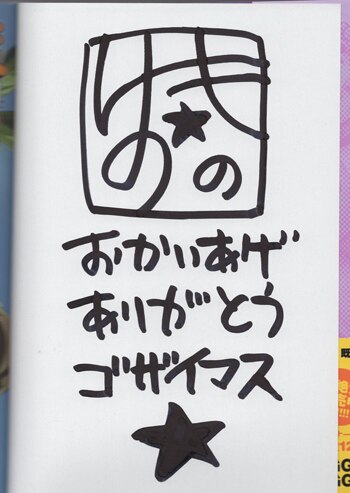 ゆき
の★の
おかいあげ
ありがとう
ゴザイマス
★
既